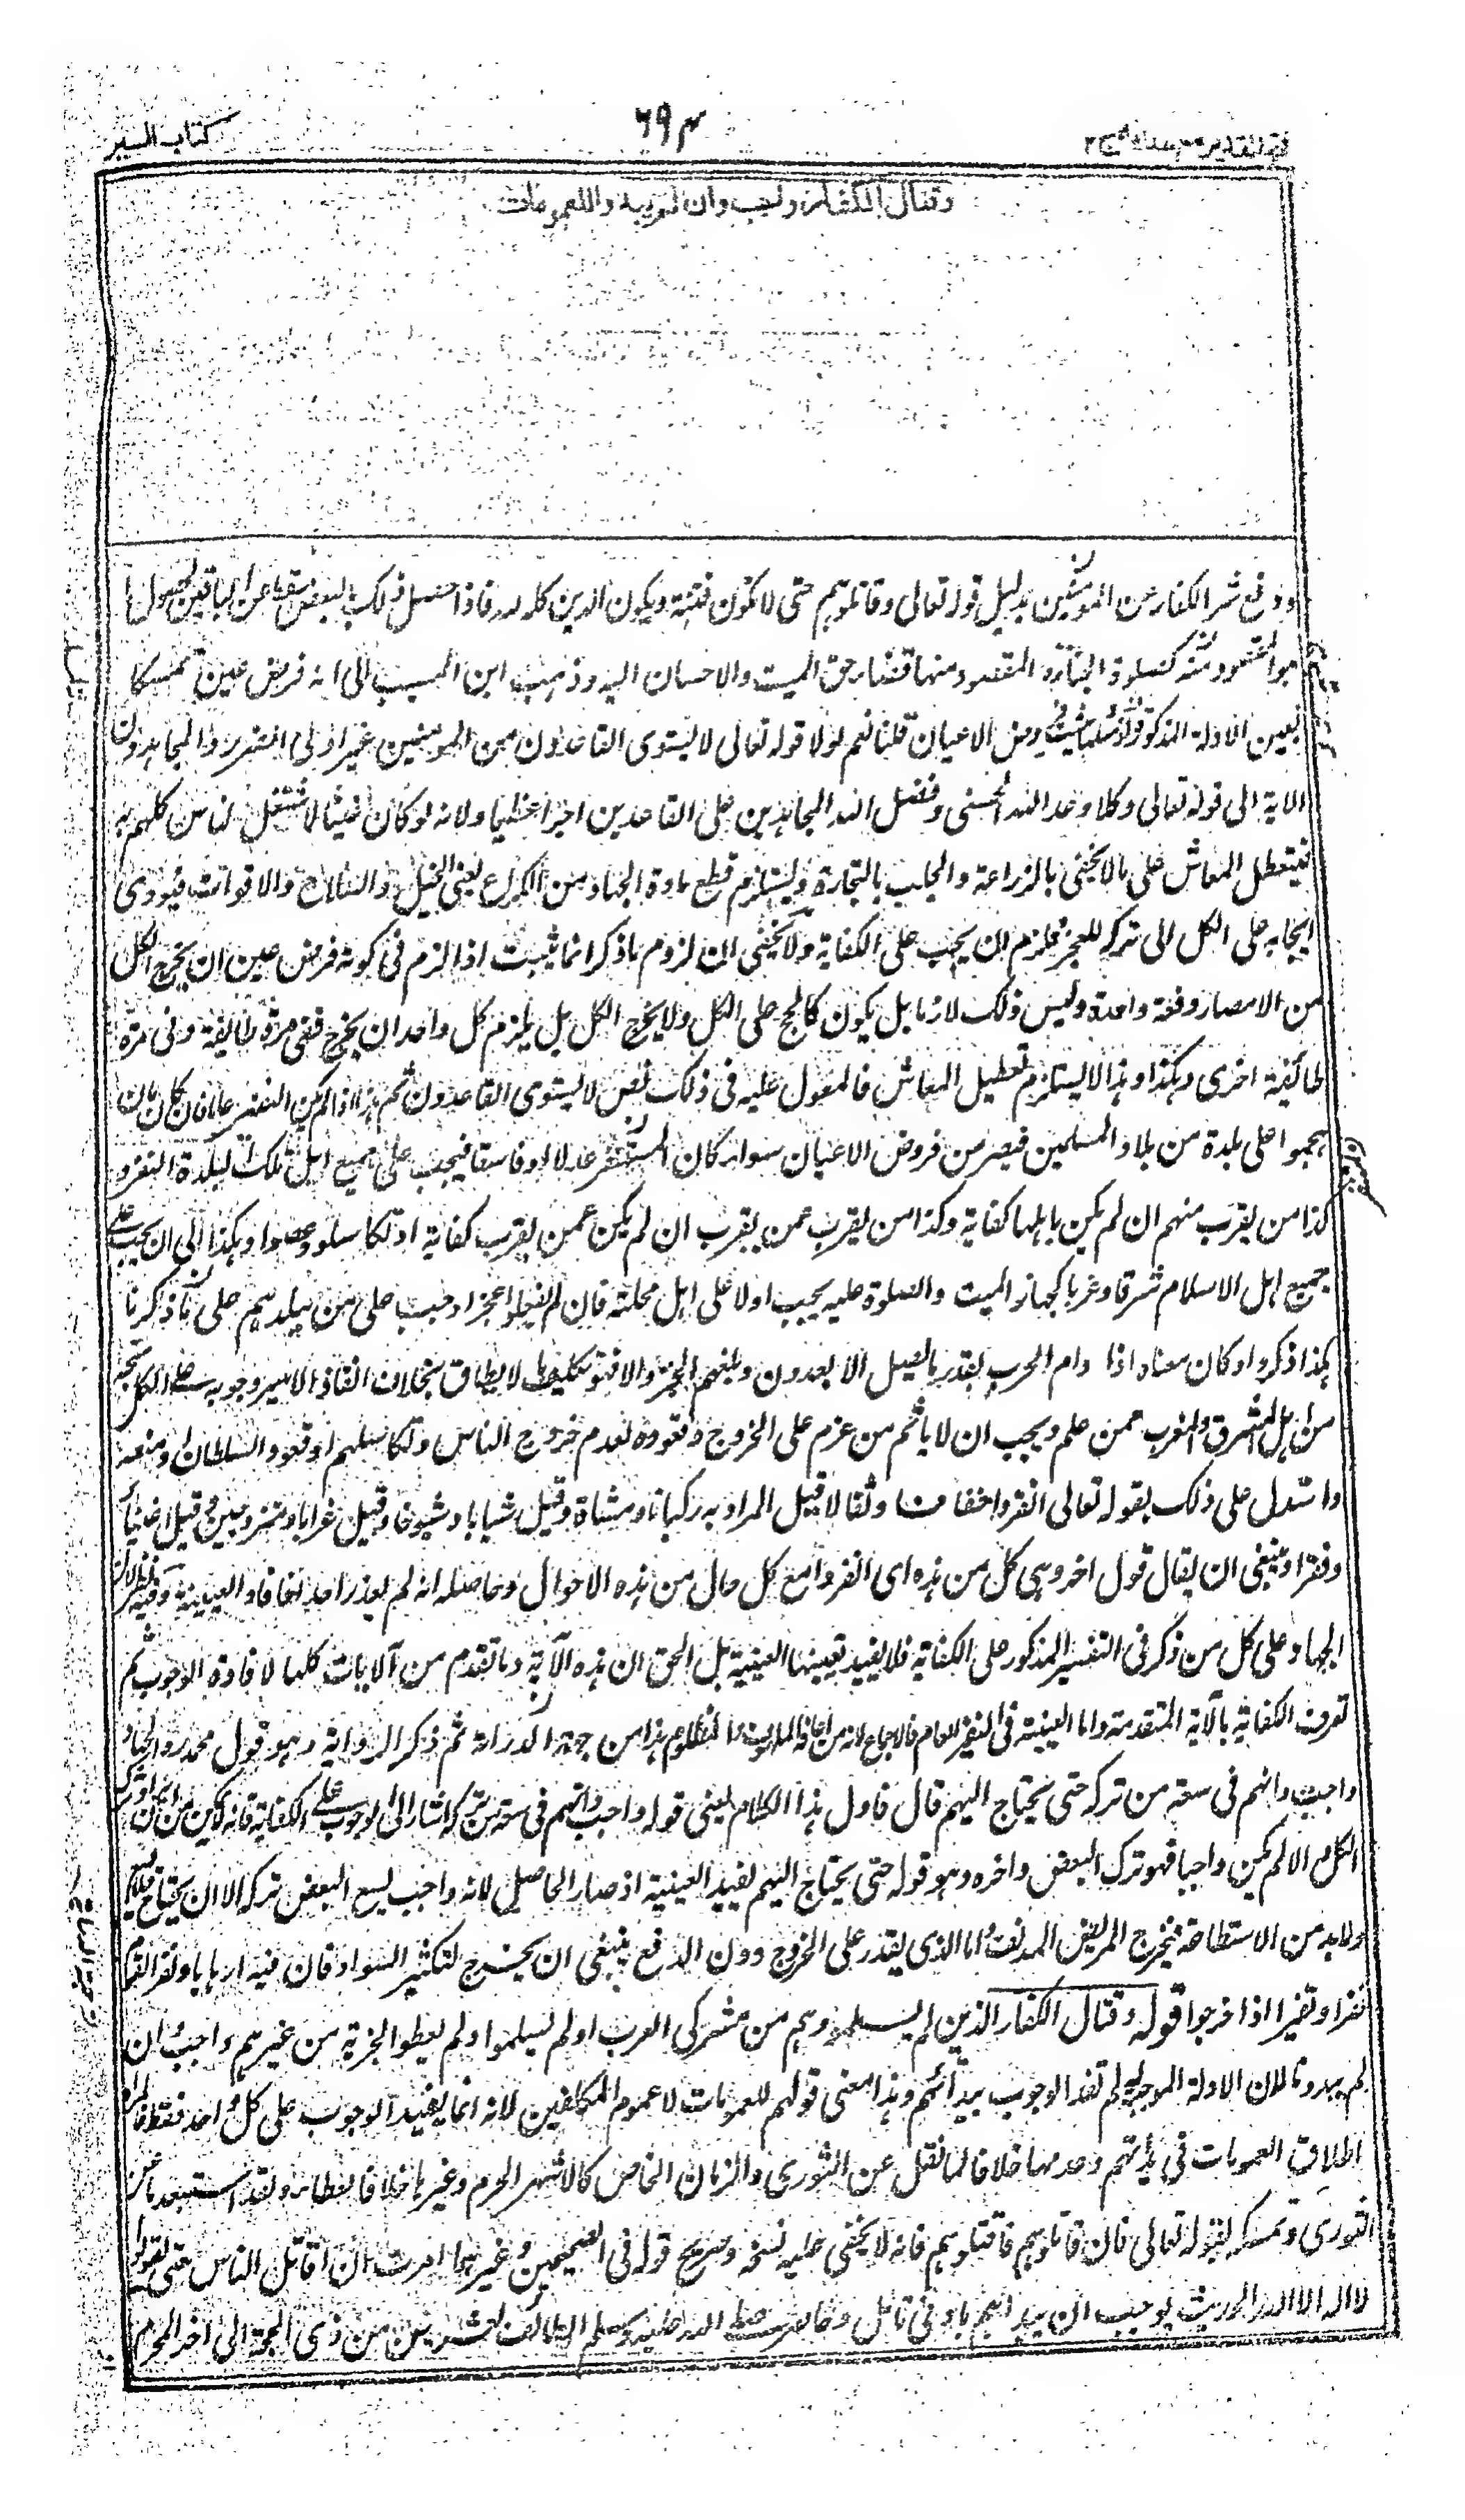 كتاب السير
٦٩٣
فتح القدير مع هداية ج ٢
وقتال الكفار واجب وان لم يبدوا للعمومات
ودفع شر الكفار عن المؤمنين بدليل قوله تعالى وقاتلوهم حتى لا تكون فتنة ويكون الدين كله لله فاذا حصل ذلك بالبعض سقط عن الباقين لحصول ما
هو المقصود منه كصلوة الجنازة المقصود منها قضاء حق الميت والاحسان اليه وذهب ابن المسيب الى انه فرض عين تمسكا
بعين الادلة المذكورة اذ بمثلها يثبت فروض الاعيان قلنا نعم لولا قوله تعالى لا يستوى القاعدون من المؤمنين غير اولى الضرر والمجاهدون
الآية الى قوله تعالى وكلا وعد الله الحسنى وفضل الله المجاهدين على القاعدين اجرا عظيما ولانه لو كان عينا لاشتغل الناس كلهم به
فيتعطل المعاش على ما لا يخفى بالزراعة والجلب بالتجارة ويستلزم قطع مادة الجهاد من الكراع يعنى الخيل والسلاح والاقوات فيؤدى
ايجابه على الكل الى تركه للعجز فلزم ان يجب على الكفاية ولا يخفى ان لزوم ما ذكر انما يثبت اذا لزم فى كونه فرض عين ان يخرج الكل
من الامصار دفعة واحدة وليس ذلك لازما بل يكون كالحج على الكل ولا يخرج الكل بل يلزم كل واحد ان يخرج ففى مرة طايفة وفى مرة
طائفة اخرى وهكذا وهذا لا يستلزم تعطيل المعاش فالمعول عليه فى ذلك نص لا يستوى القاعدون ثم هذا اذا لم يكن النفير عاما فان كان بان
هجموا على بلدة من بلاد المسلمين فيصير من فروض الاعيان سواء كان المستنفر عدلا او فاسقا فيجب على جميع اهل تلك البلدة النفر و
كذا من يقرب منهم ان لم يكن باهلها كفاية وكذا من يقرب ممن يقرب ان لم يكن ممن يقرب كفاية او تكاسلوا وعصوا وهكذا الى ان يجب على
جميع اهل الاسلام شرقا وغربا كجهاز الميت والصلوة عليه يجب اولا على اهل محلته فان لم يفعلوا عجزا وجب على من ببلدهم على ما ذكرنا
هكذا ذكروا وكان معناه اذا دام الحرب بقدر ما يصل الابعدون وبلغهم الخبر والا فهو تكليف ما لا يطاق بخلاف انقاذ الاسير وجوبه على الكل متجه
من اهل المشرق والمغرب ممن علم ويجب ان لا ياثم من عزم على الخروج وقعوده لعدم خروج الناس وتكاسلهم او قعود السلطان او منعه
واستدل على ذلك بقوله تعالى انفروا خفافا وثقالا قيل المراد به ركبانا ومشاة وقيل شبابا وشيوخا وقيل عزابا ومتزوجين وقيل اغنياء
وفقراء وينبغى ان يقال قول اخر وهى كل من هذه اى انفروا مع كل حال من هذه الاحوال وحاصله انه لم يعذر احدا فافاد العينية وفيه نظر لان
الجهاد على كل من ذكر فى التفسير المذكور على الكفاية فلا يفيد تعيينها العينية بل الحق ان هذه الآية وما تقدم من الآيات كلها لافادة الوجوب ثم
تعرف الكفاية بالآية المتقدمة واما العينية فى النفير العام فبالاجماع لانه من اغاثة الملهوف والمظلوم هذا من جهة الدراية ثم ذكر الرواية وهو قول محمد رح والجهاد
واجب وانهم فى سعة من تركه حتى يحتاج اليهم قال فاول هذا الكلام يعنى قوله واجب وانهم فى سعة من تركه اشار الى الوجوب على الكفاية
الكل والا لم يكن واجبا فهو ترك البعض واخره وهو قوله حتى يحتاج اليهم يفيد العينية اذ صار الحاصل لانه واجب يسع البعض تركه الا ان يحتاج
ولا بد من الاستطاعة فيخرج المريض المدنف اما الذى يقدر على الخروج دون الدفع ينبغى ان يخرج لتكثير السواد فان فيه ارهابا ونفر القوم
نفرا ونفيرا اذا خرجوا قوله وقتال الكفار الذين لم يسلموا وهم من مشركى العرب او لم يسلموا ولم يعطوا الجزية من غيرهم واجب وان
لم يبدونا لان الادلة الموجبة لم تقيد الوجوب ببداءتهم وهذا معنى قولهم للعمومات لا عموم المكلفين لانه انما يفيد الوجوب على كل احد فقط فالمراد
اطلاق العمومات فى بداءتهم وعدمها خلافا لما نقل عن الثورى والزمان الخاص كالاشهر الحرم وغيرها خلافا لعطاء ولقد استبعد ما عن
الثورى وتمسكه بقوله تعالى فان قاتلوكم فاقتلوهم فانه لا يخفى عليه نسخه وصريح قوله فى الصحيحين وغيرهما امرت ان اقاتل الناس حتى يقولوا
لا اله الا الله الحديث يوجب ان يبدأهم بادنى تأمل وحاصر صلى الله عليه وسلم الطائف لعشر بقين من ذى الحجة الى اخر المحرم